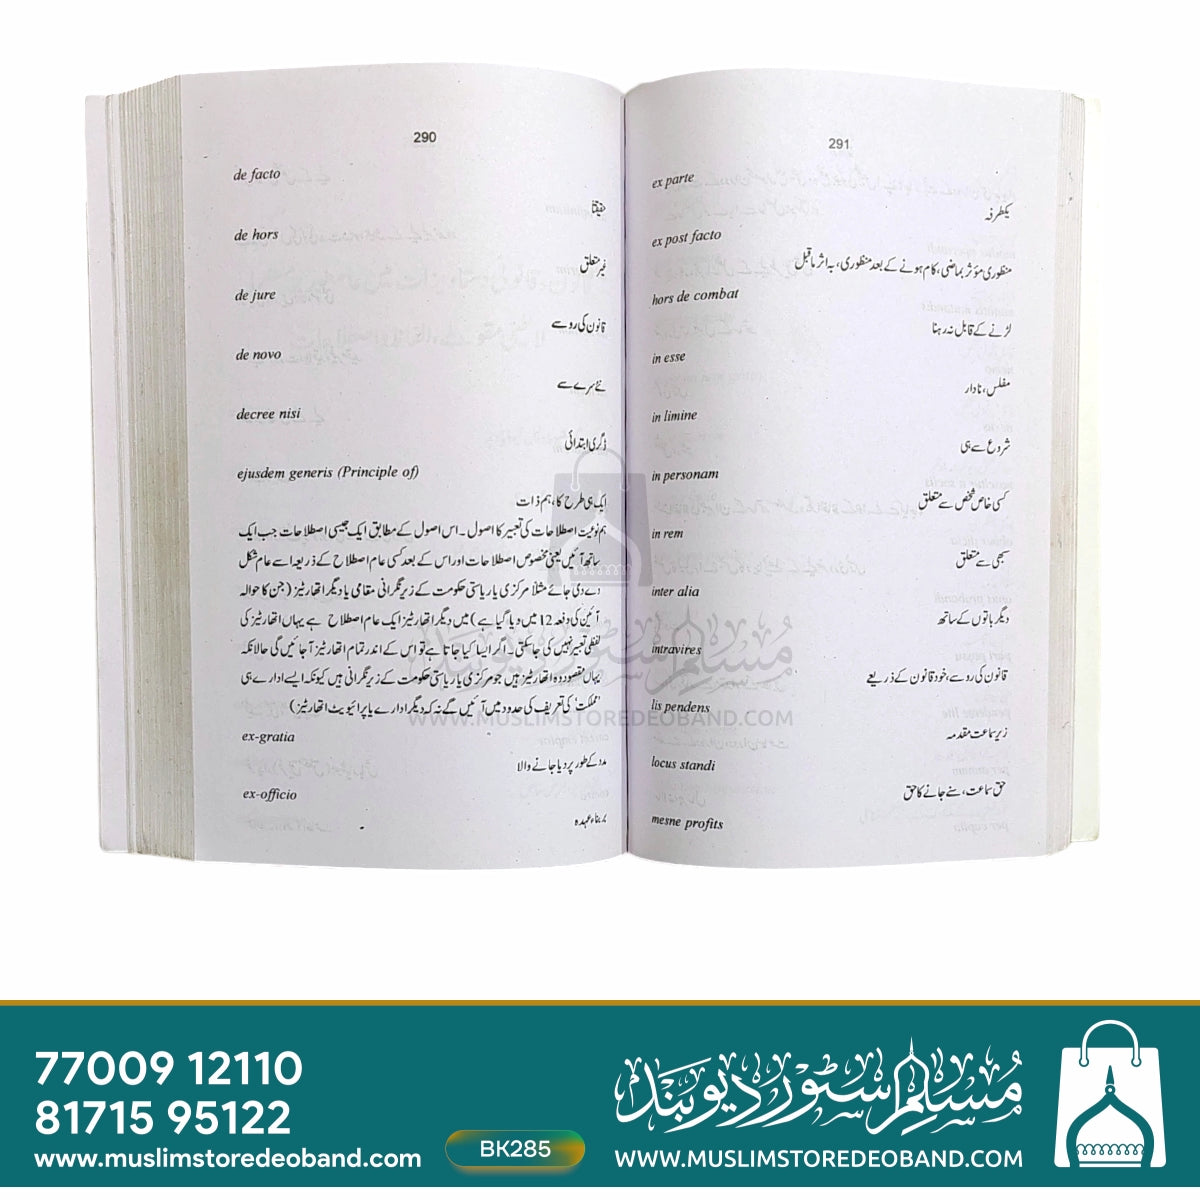 290
de facto
حقیقتاً
de hors
غیر متعلق
de jure
قانون کی رو سے
de novo
نئے سرے سے
decree nisi
ڈگری ابتدائی
ejusdem generis (Principle of)
ایک ہی طرح کا، ہم ذات
ہم نوعیت اصطلاحات کی تعبیر کا اصول۔ اس اصول کے مطابق ایک جیسی اصطلاحات جب ایک
ساتھ آئیں یعنی مخصوص اصطلاحات اور اس کے بعد کسی عام اصطلاح کے ذریعہ اسے عام شکل
دے دی جائے مثلاً مرکزی یا ریاستی حکومت کے زیر نگرانی مقامی یا دیگر اتھارٹیز (جن کا حوالہ
آئین کی دفعہ 12 میں دیا گیا ہے) میں دیگر اتھارٹیز ایک عام اصطلاح ہے یہاں اتھارٹیز کی
لفظی تعبیر نہیں کی جاسکتی۔ اگر ایسا کیا جاتا ہے تو اس کے اندر تمام اتھارٹیز آجائیں گی حالانکہ
یہاں مقصود وہ اتھارٹیز ہیں جو مرکزی یا ریاستی حکومت کے زیر نگرانی ہیں کیونکہ ایسے ادارے ہی
'مملکت' کی تعریف کی حدود میں آئیں گے نہ کہ دیگر ادارے یا پرائیویٹ اتھارٹیز)
ex-gratia
مدد کے طور پر دیا جانے والا
ex-officio
بربناء عہدہ
291
ex parte
یکطرفہ
ex post facto
منظوری مؤثر بماضی، کام ہونے کے بعد منظوری، بہ اثر ماقبل
hors de combat
لڑنے کے قابل نہ رہنا
in esse
مفلس، نادار
in limine
شروع سے ہی
in personam
کسی خاص شخص سے متعلق
in rem
سبھی سے متعلق
inter alia
دیگر باتوں کے ساتھ
intravires
قانون کی رو سے، خود قانون کے ذریعے
lis pendens
زیر سماعت مقدمہ
locus standi
حق سماعت، سنے جانے کا حق
mesne profits
مسلم سٹور دیوبند
WWW.MUSLIMSTOREDEOBAND.COM
77009 12110
81715 95122
www.muslimstoredeoband.com
BK285
مسلم سٹور دیوبند
WWW.MUSLIMSTOREDEOBAND.COM